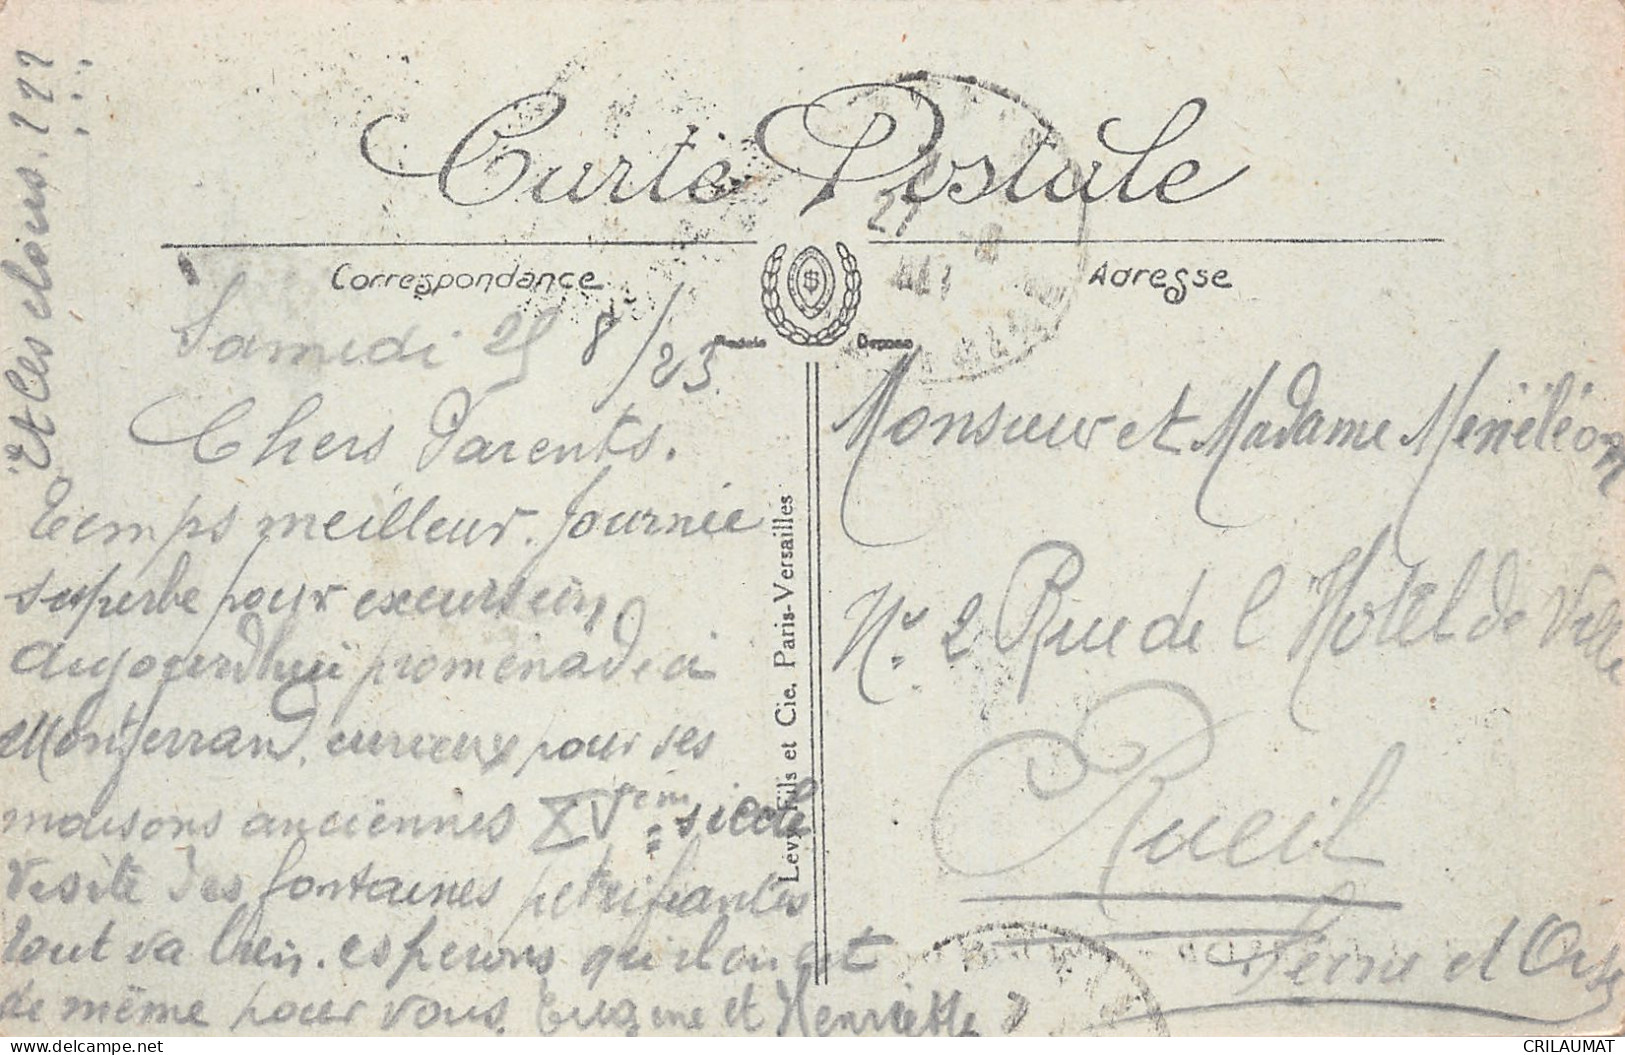 Carte Postale
Correspondance
Adresse
Modèle Déposé
$
27
Samedi 25 8/23
Chers Parents.
Temps meilleur. Journée
superbe pour excursion,
aujourdhui promenade à
Montferrand, curieux pour ses
maisons anciennes XVèm siècle
Visite des fontaines petrifiantes
tout va bien. esperons qu'il en est
de même pour vous. Eugène et Henriette
Et les clous. ? ? ?
! ! !
Levy Fils et Cie. Paris-Versailles
Monsieur et Madame Menëléon
No. 2 Rue de l Hotel de Ville
Rueil
Seine et Oise
CRILAUMAT